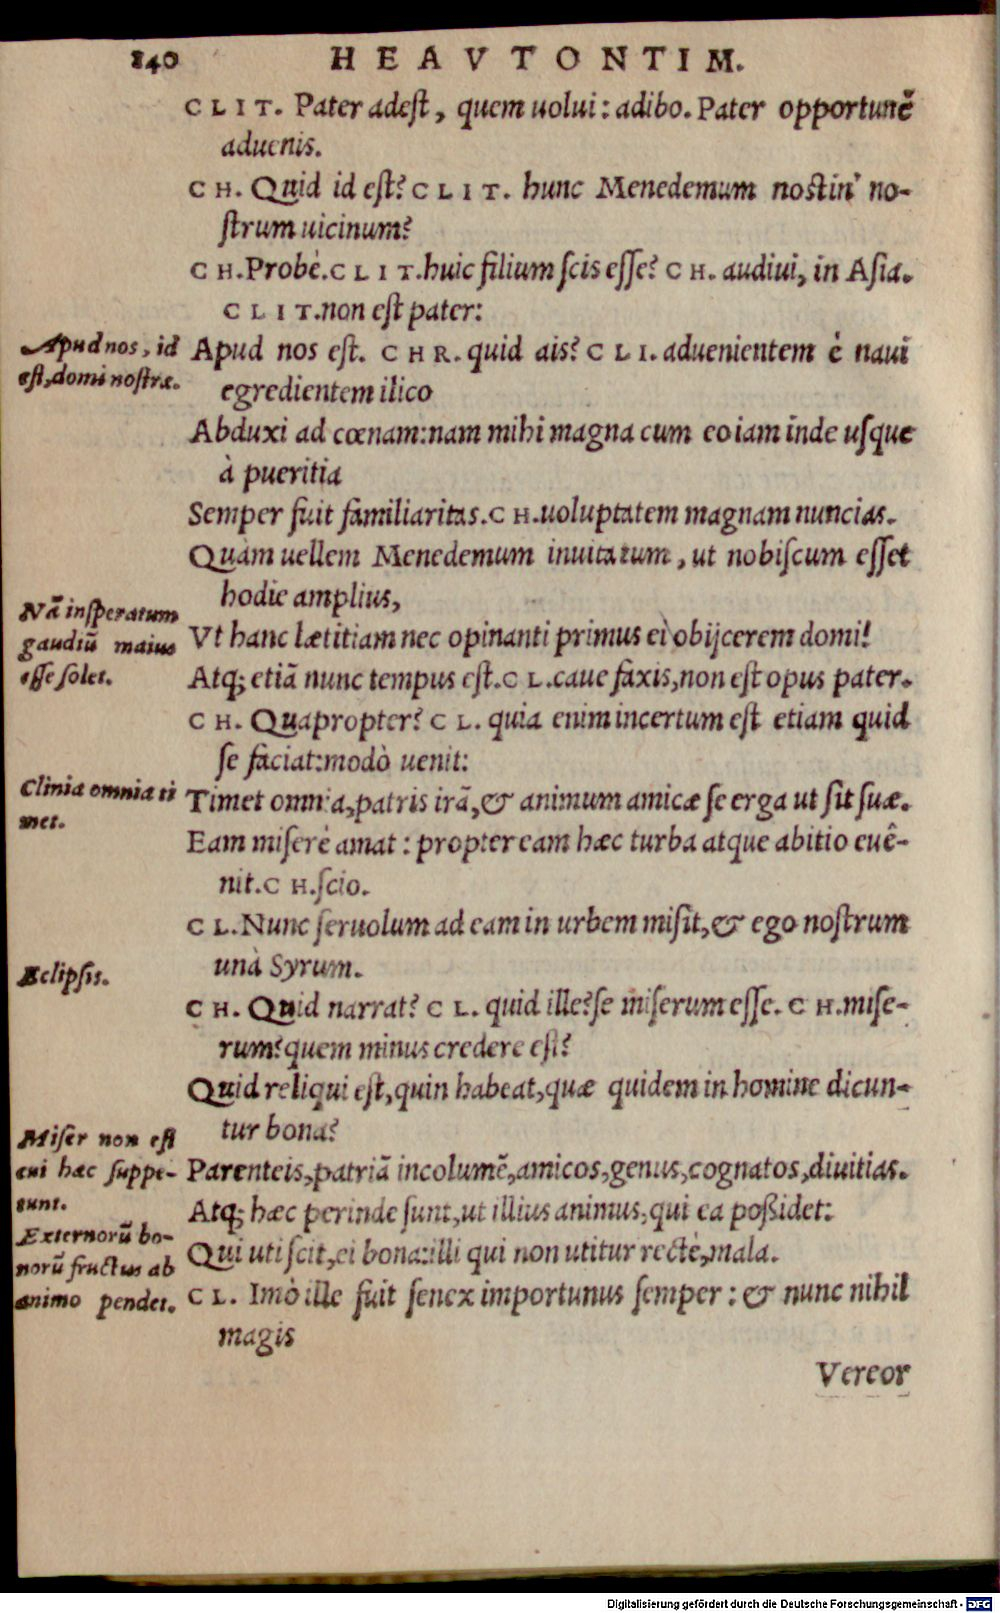 140 HEAVTONTIM.
CLIT. Pater adest, quem uolui: adibo. Pater opportunẽ
aduenis.
CH. Quid id est? CLIT. hunc Menedemum nostin' no-
strum uicinum?
CH. Probè. CLIT. huic filium scis esse? CH. audiui, in Asia.
CLIT. non est pater:
Apud nos, id
est, domi nostræ.
Apud nos est. CHR. quid ais? CLI. aduenientem è naui
egredientem ilico
Abduxi ad cœnam: nam mihi magna cum eo iam inde usque
à pueritia
Semper fuit familiaritas. CH. uoluptatem magnam nuncias.
Quàm uellem Menedemum inuitatum, ut nobiscum esset
hodie amplius,
Nã insperatum
gaudiũ maius
esse solet.
Vt hanc lætitiam nec opinanti primus ei obijcerem domi!
Atq; etiã nunc tempus est. CL. caue faxis, non est opus pater.
CH. Quapropter? CL. quia enim incertum est etiam quid
se faciat: modò uenit:
Clinia omnia ti
met.
Timet omnia, patris irã, & animum amicæ se erga ut sit suæ.
Eam miserè amat: propter eam hæc turba atque abitio euê-
nit. CH. scio.
CL. Nunc seruolum ad eam in urbem misit, & ego nostrum
unà Syrum.
Eclipsis.
CH. Quid narrat? CL. quid ille? se miserum esse. CH. mise-
rum? quem minus credere est?
Quid reliqui est, quin habeat, quæ quidem in homine dicun-
tur bona?
Miser non est
cui hæc suppe-
tunt.
Parenteis, patriã incolumẽ, amicos, genus, cognatos, diuitias.
Atq; hæc perinde sunt, ut illius animus, qui ea possidet:
Externorũ bo-
norũ fructus ab
animo pendet.
Qui uti scit, ei bona: illi qui non utitur rectè, mala.
CL. Imò ille fuit senex importunus semper: & nunc nihil
magis
Vereor
Digitalisierung gefördert durch die Deutsche Forschungsgemeinschaft - DFG